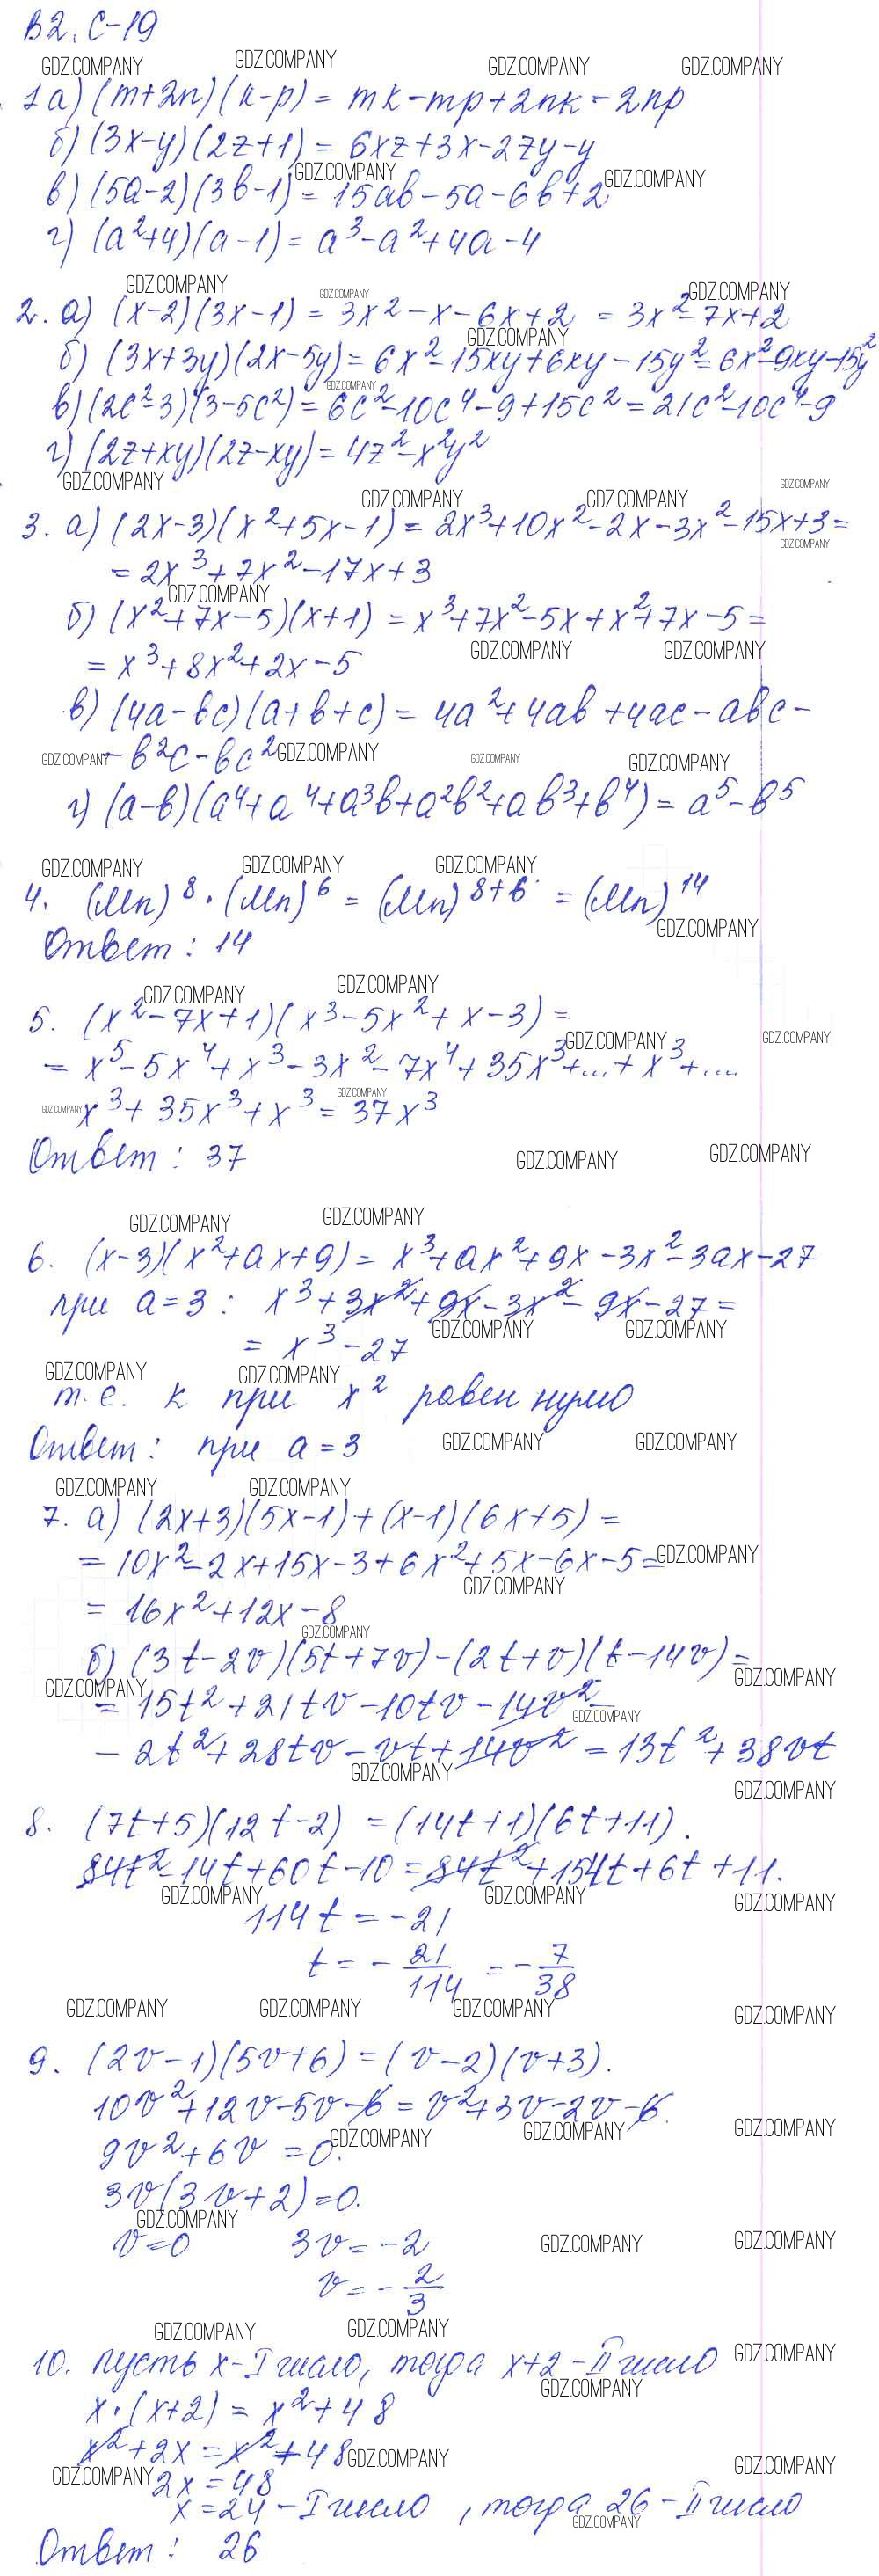 В2. С-19
1 а) (m+2n)(k-p) = mk-mp+2nk-2np
б) (3x-y)(2z+1) = 6xz+3x-2zy-y
в) (5a-2)(3b-1) = 15ab-5a-6b+2
г) (a²+4)(a-1) = a³-a²+4a-4
2. а) (x-2)(3x-1) = 3x²-x-6x+2 = 3x²-7x+2
б) (3x+3y)(2x-5y) = 6x²-15xy+6xy-15y² = 6x²-9xy-15y²
в) (2c²-3)(3-5c²) = 6c²-10c⁴-9+15c² = 21c²-10c⁴-9
г) (2z+xy)(2z-xy) = 4z²-x²y²
3. а) (2x-3)(x²+5x-1) = 2x³+10x²-2x-3x²-15x+3 =
= 2x³+7x²-17x+3
б) (x²+7x-5)(x+1) = x³+7x²-5x+x²+7x-5 =
= x³+8x²+2x-5
в) (4a-bc)(a+b+c) = 4a²+4ab+4ac-abc-
-b²c-bc²
г) (a-b)(a⁴+a⁴+a³b+a²b²+ab³+b⁴) = a⁵-b⁵
4. (Mn)⁸·(Mn)⁶ = (Mn)⁸⁺⁶ = (Mn)¹⁴
Ответ: 14
5. (x²-7x+1)(x³-5x²+x-3) =
= x⁵-5x⁴+x³-3x²-7x⁴+35x³+...+x³+....
x³+35x³+x³ = 37x³
Ответ: 37
6. (x-3)(x²+ax+9) = x³+ax²+9x-3x²-3ax-27
при a=3: x³+3x²+9x-3x²-9x-27 =
= x³-27
т.е. к при x² равен нулю
Ответ: при a=3
7. а) (2x+3)(5x-1)+(x-1)(6x+5) =
= 10x²-2x+15x-3+6x²+5x-6x-5 =
= 16x²+12x-8
б) (3t-2v)(5t+7v)-(2t+v)(t-14v) =
= 15t²+21tv-10tv-14v²-
-2t²+28tv-vt+14v² = 13t²+38vt
8. (7t+5)(12t-2) = (14t+1)(6t+11).
84t²-14t+60t-10 = 84t²+154t+6t+11.
114t = -21
t = -21/114 = -7/38
9. (2v-1)(5v+6) = (v-2)(v+3).
10v²+12v-5v-6 = v²+3v-2v-6.
9v²+6v = 0.
3v(3v+2)=0.
v=0 3v=-2
v=-2/3
10. пусть x-I число, тогда x+2-II число
x·(x+2) = x²+48
x²+2x = x²+48
2x = 48
x=24-I число, тогда 26-II число
Ответ: 26
GDZ.COMPANY